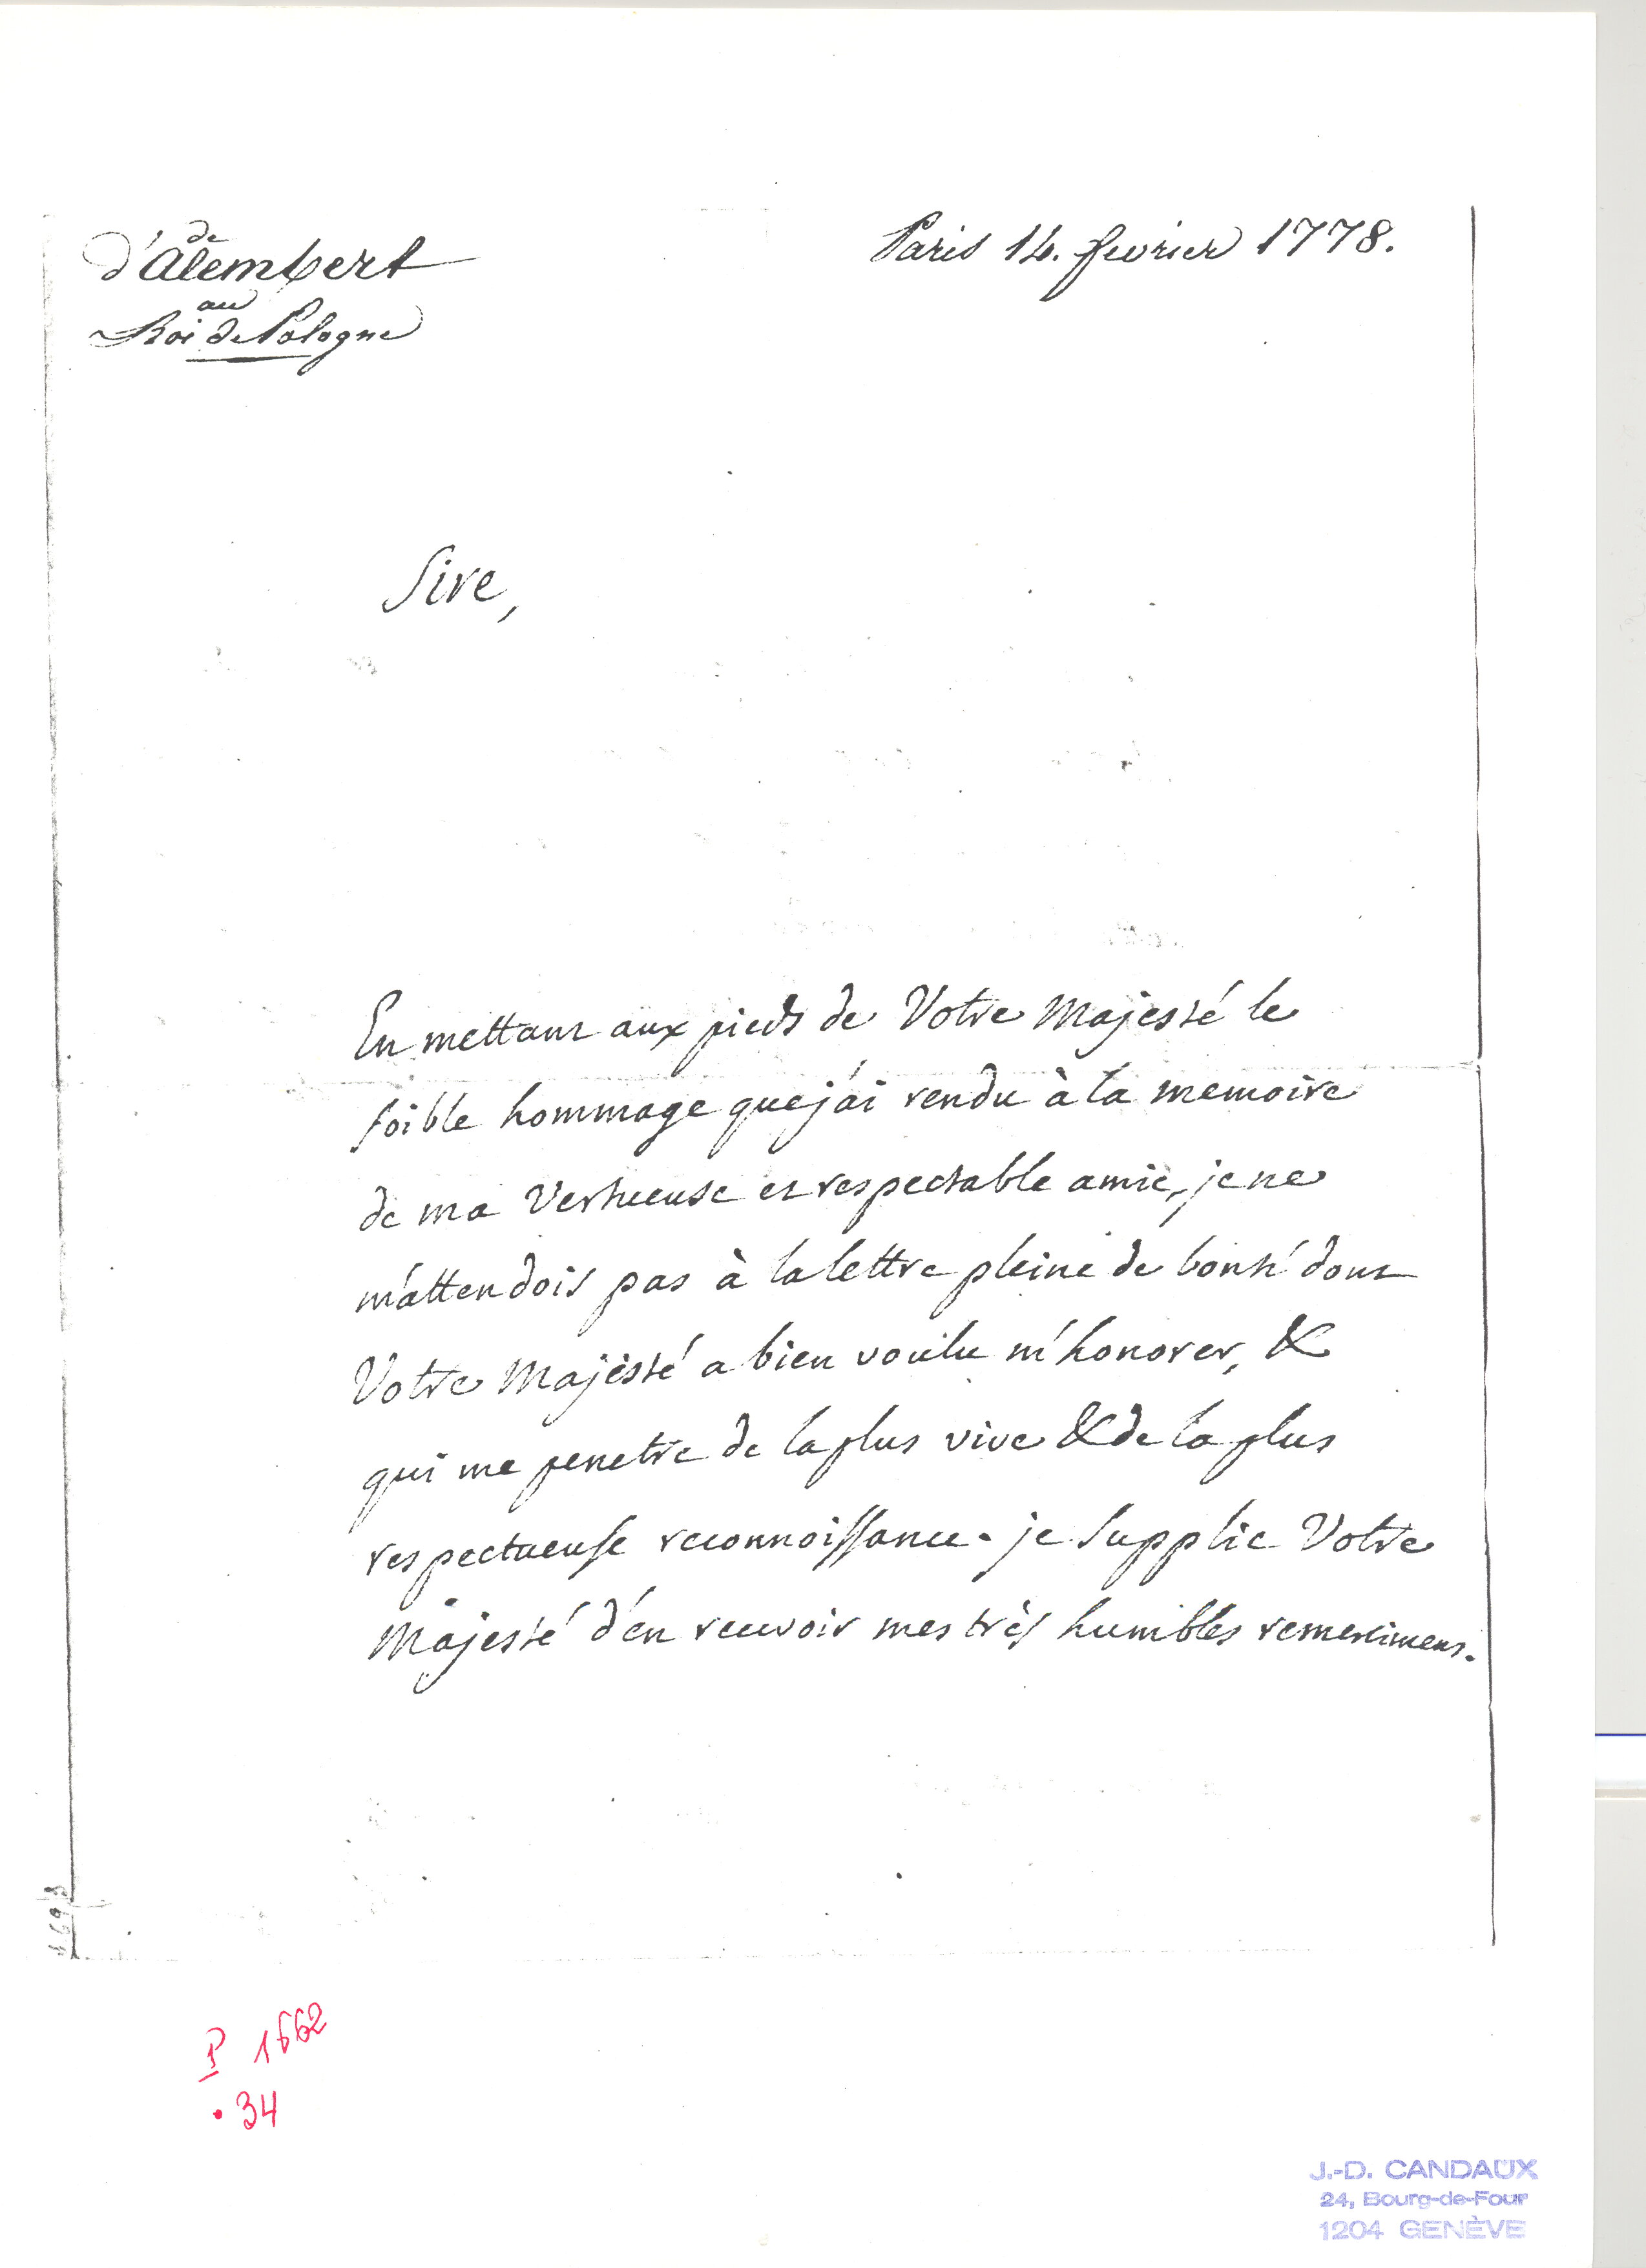 de
d'Alembert
au
Roi de Pologne
Paris 14. fevrier 1778.
Sire,
En mettant aux pieds de Votre Majesté le
foible hommage que j'ai rendu à la memoire
de ma vertueuse et respectable amie, je ne
m'attendois pas à la lettre pleine de bonté dont
Votre Majesté a bien voulu m'honorer, &
qui me penetre de la plus vive & de la plus
respectueuse reconnoissance. je supplie Votre
Majesté d'en recevoir mes très humbles remercimens.
P 1662
• 34
J.-D. CANDAUX
24, Bourg-de-Four
1204 GENÈVE